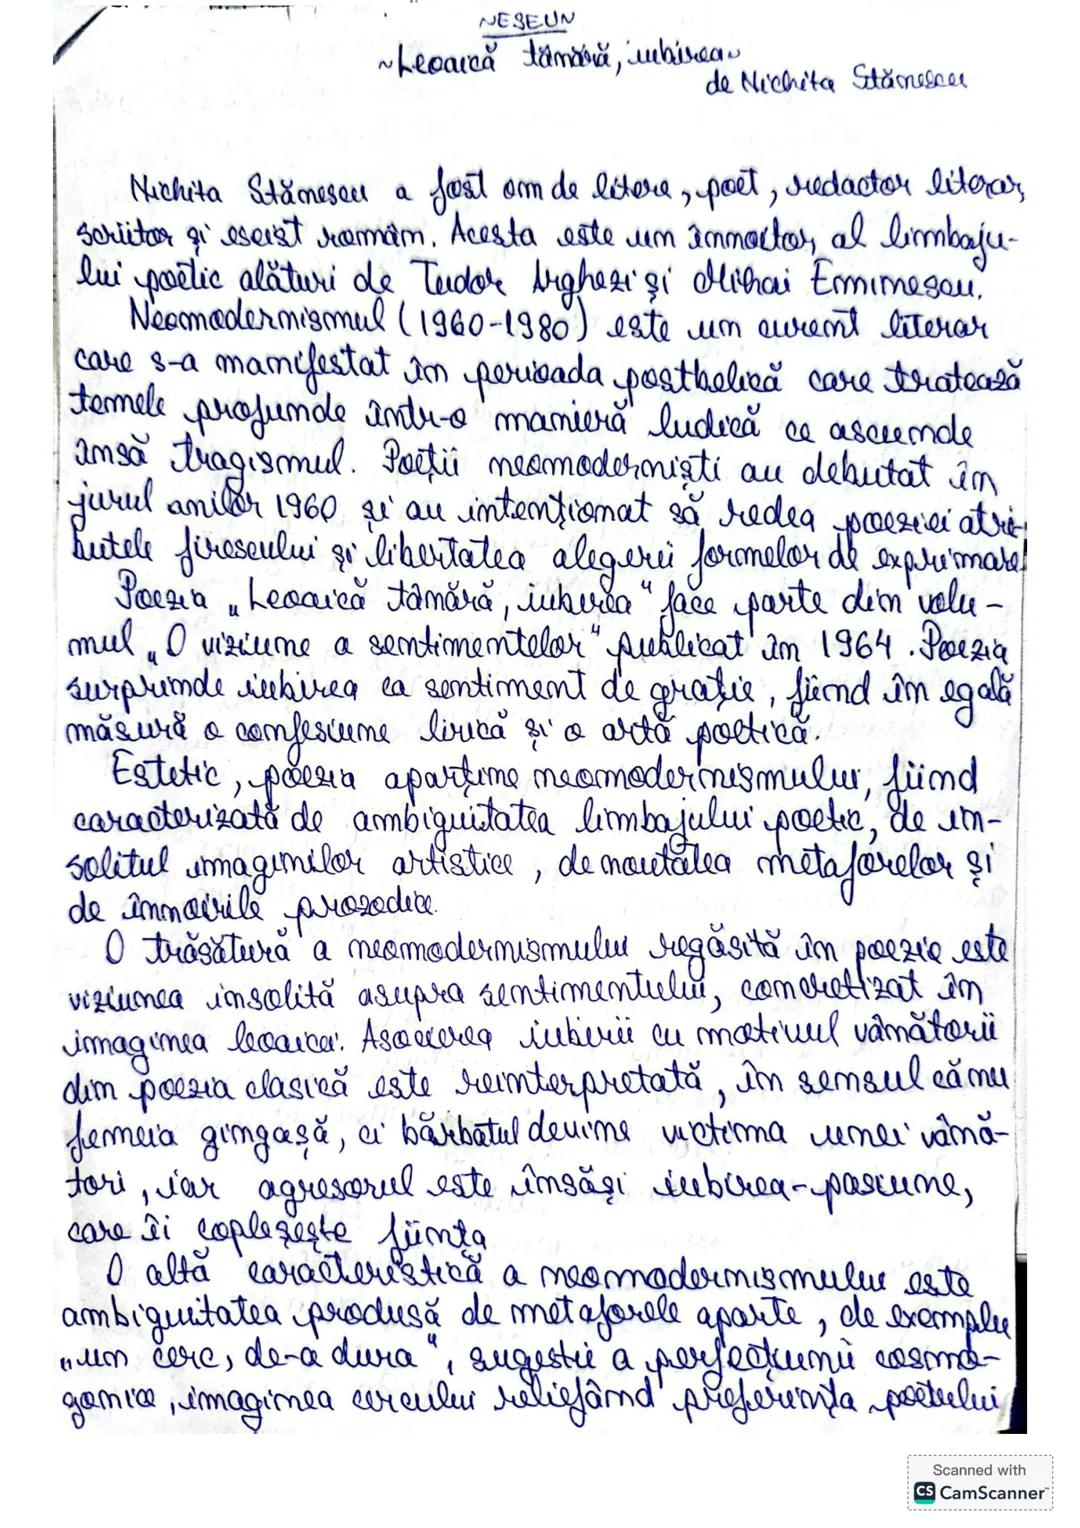 NESEUN
~Leoaică tânără, iubirea~
de Nichita Stănescu
Nichita Stănescu a fost om de litere, poet, redactor literar,
scriitor și eseist român. Acesta este un înnoitor al limbaju-
lui poetic alături de Tudor Arghezi și Mihai Eminescu.
Neomodernismul (1960-1980) este un curent literar
care s-a manifestat în perioada postbelică care tratează
temele profunde într-o manieră ludică ce ascunde
însă tragismul. Poeții neomoderniști au debutat în
jurul anilor 1960 și au intenționat să redea poeziei atri-
butele firescului și libertatea alegerii formelor de exprimare.
Poezia „Leoaică tânără, iubirea" face parte din volu-
mul „O viziune a sentimentelor" publicat în 1964. Poezia
surprinde iubirea ca sentiment de grație, fiind în egală
măsură o confesiune lirică și o artă poetică.
Estetic, poezia aparține neomodernismului, fiind
caracterizată de ambiguitatea limbajului poetic, de in-
solitul imaginilor artistice, de noutatea metaforelor și
de înnoirile prozodice.
O trăsătură a neomodernismului regăsită în poezie este
viziunea insolită asupra sentimentului, concretizat în
imaginea leoaicei. Asocierea iubirii cu motivul vânătorii
din poezia clasică este reinterpretată, în sensul că nu
femeia gingașă, ci bărbatul devine victima unei vână-
tori, iar agresorul este însăși iubirea-pasiune,
care îi copleșește ființa
O altă caracteristică a neomodernismului este
ambiguitatea produsă de metaforele aparte, de exemplu
„un cerc, de-a dura", sugestie a perfecțiunii cosmo-
gonice, imaginea cercului reliefând preferința poetului
Scanned with
CS CamScanner